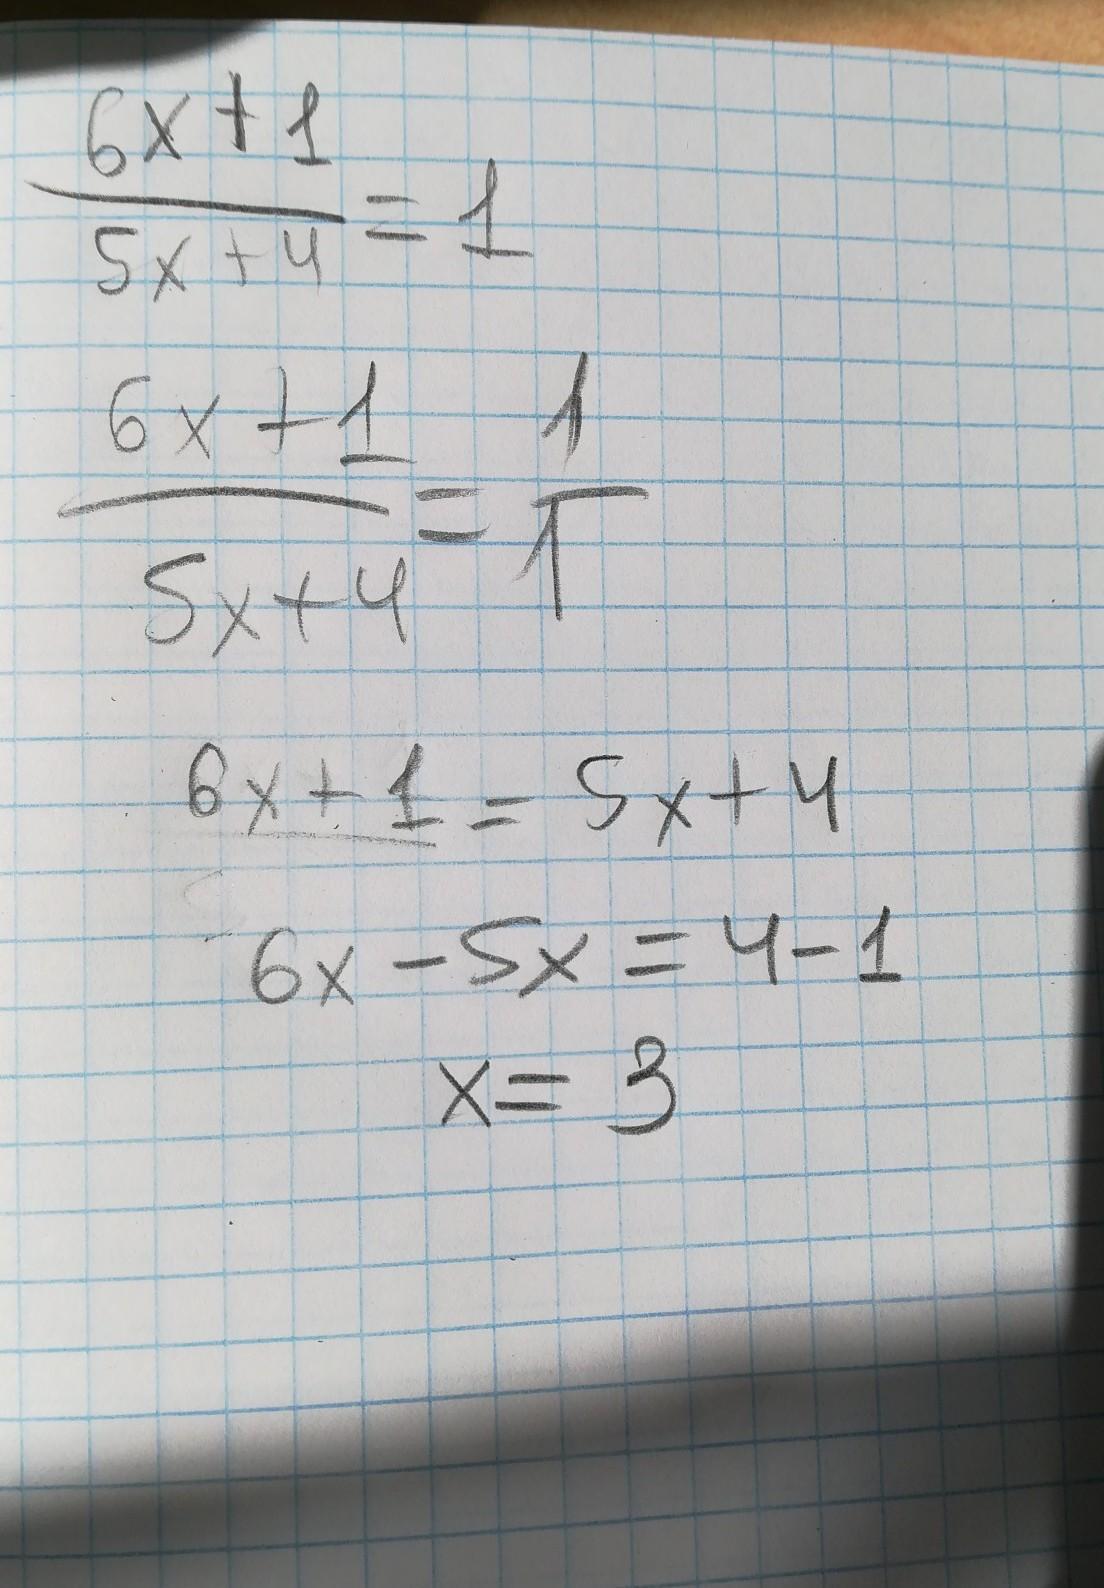 6x+1
5x+4 = 1
6x+1 1
5x+4 = 1
6x+1 = 5x+4
6x-5x = 4-1
x= 3